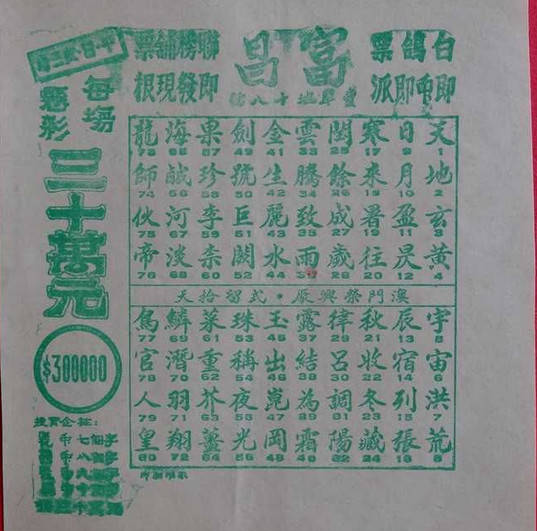 白鴿票
富昌
聯榜舖票
即發現根
每場
懸彩
三十萬元
$300000
天日寒閏雲金劍果海龍
1 9 17 25 33 41 49 57 65 73
地月來餘騰生號珍鹹師
2 10 18 26 34 42 50 58 66 74
玄盈暑成致麗巨李河伙
3 11 19 27 35 43 51 59 67 75
黃昃往歲雨水闕柰淡帝
4 12 20 28 36 44 52 60 68 76
澳門榮興廠・式留拾天
宇辰秋律露玉珠菜鱗鳥
5 13 21 29 37 45 53 61 69 77
宙宿收呂結出稱重潛官
6 14 22 30 38 46 54 62 70 78
洪列冬調為崑夜芥羽人
7 15 23 31 39 47 55 63 71 79
荒張藏陽霜岡光薑翔皇
8 16 24 32 40 48 56 64 72 80